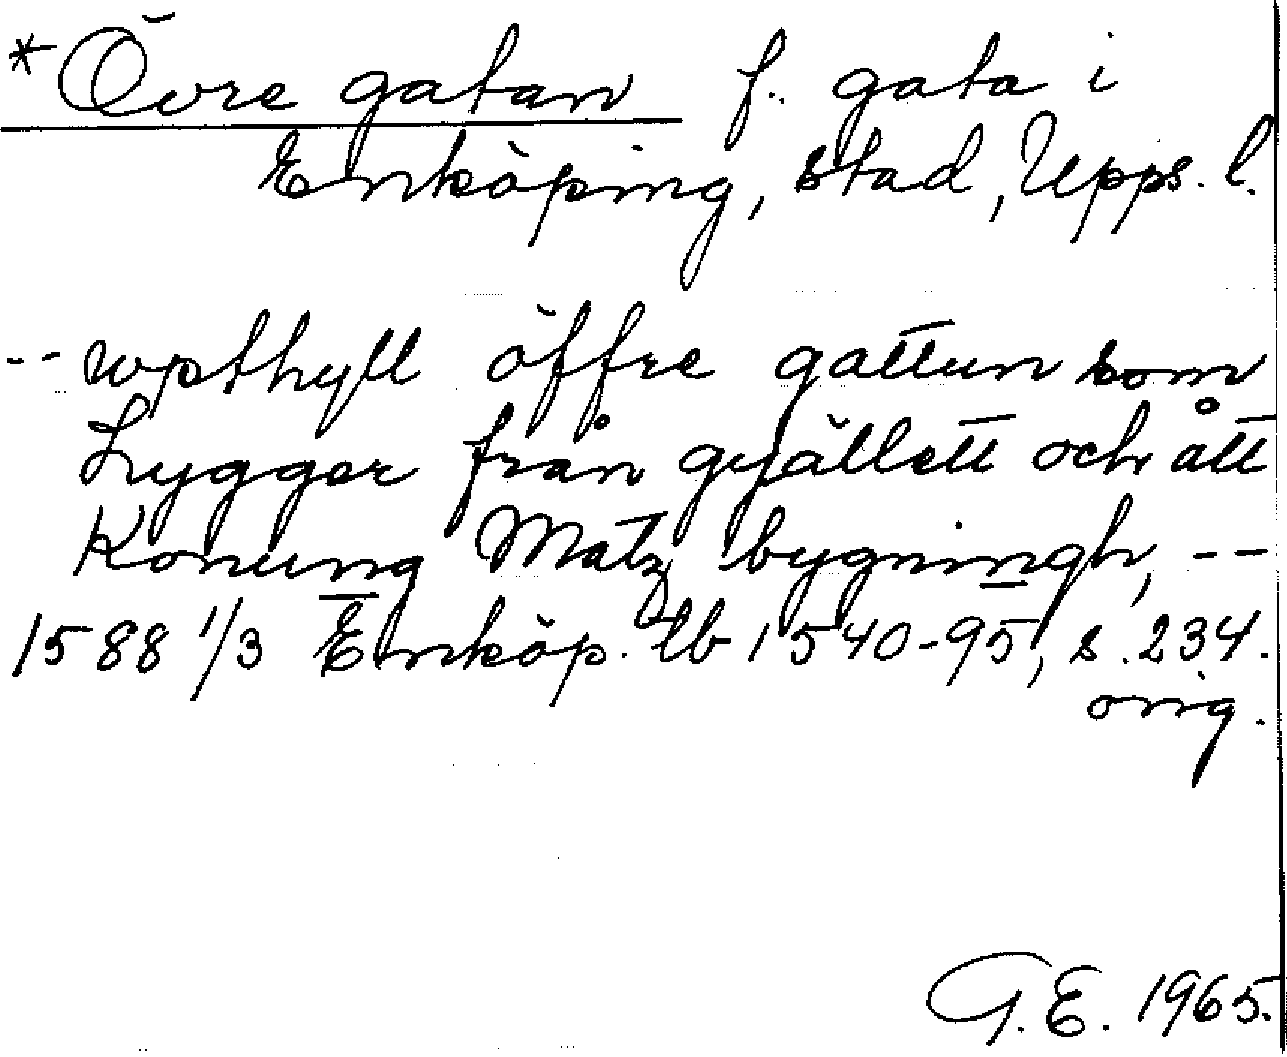 *Övre gatan f. gata i
Enköping, stad, Upps. l.
-- wpthyll öffre gattun som
Lygger från gyällett ochått
Konung Matz bygningh, --
1588 1/3 Enköp. tb 1540-95, s. 234.
orig.
G. E. 1965.